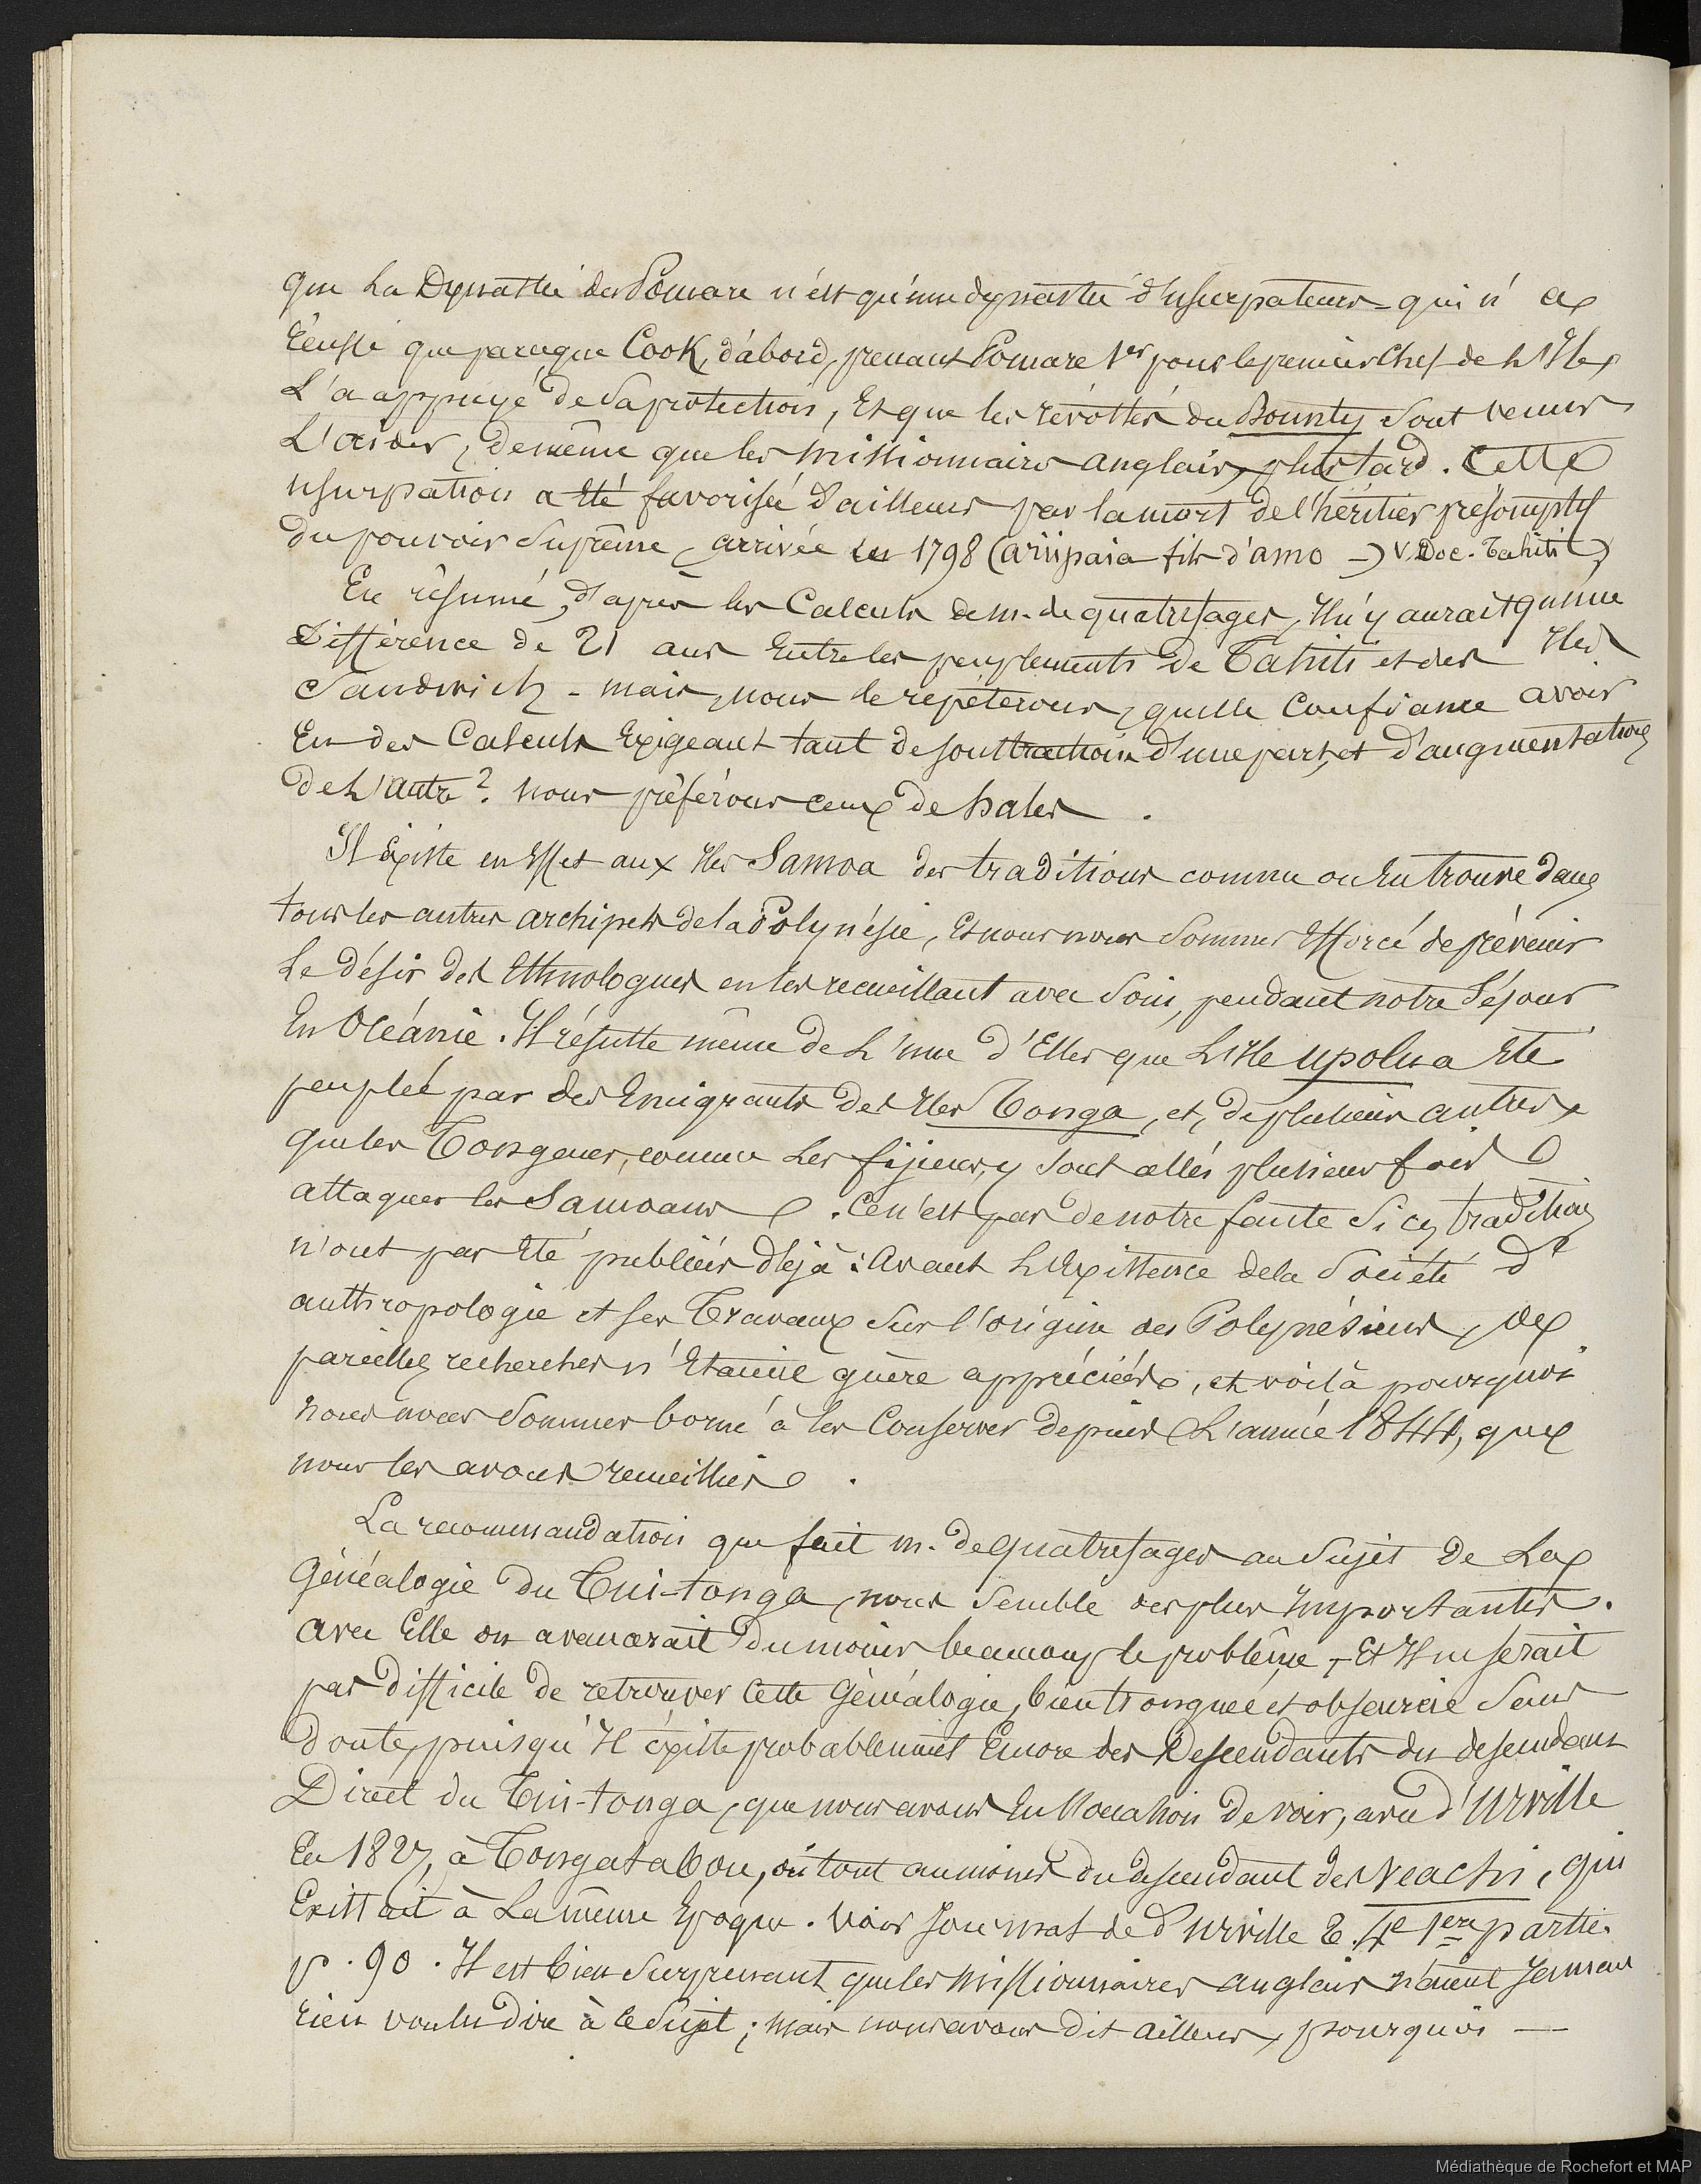 que La Dynastie des Pomare n'est qu'une dynastie d'usurpateurs - qui n'a
réussi que parceque Cook, d'abord, prenant Pomare 1er pour le premier Chef de L'Ile,
L'a appuyé de sa protection, Et que les révoltés du Bounty sont venus
L'aider, de même que les missionnaires anglais, plus tard. Cette
usurpation a été favorisée d'ailleurs par la mort de l'héritier présomptif
du pouvoir suprême, arrivée en 1798 (ariipaia fils d'amo -) V. Doc. Tahiti)
En résumé, d'après les Calculs de m. de quatrefages, Il n'y aurait qu'une
Différence de 21 ans Entre les peuplements de Tahiti et des Iles
Sandwich - mais, nous le repéterons, quelle Confiance avoir
En des Calculs Exigeant tant de soustractions d'une part, et d'augmentations
de L'autre ? nous préférons ceux de hales.
Il Existe en Effet aux Iles Samoa des traditions comme on En trouve dans
tous les autres archipels de la Polynésie, Et nous nous sommes Efforcé de prévenir
Le désir des Ethnologues en les recueillant avec soin, pendant notre Séjour
En Océanie. Il résulte même de L'une d'Elles que L'Ile upolu a Eté
peuplée par des Emigrants des Iles Tonga, et, de plusieurs autres,
que les Tongans, comme Les fijiens, y sont allés plusieurs fois
attaquer les Samoans. Ce n'est pas de notre faute Si ces traditions
n'ont pas Eté publiées déjà : Avant L'Existence de la Société d'
anthropologie et ses Travaux sur l'origine des Polynésiens, de
pareilles recherches n'Etaient guère appréciées, et voilà pourquoi
nous nous sommes borné à les Conserver depuis L'année 1844, que
nous les avons recueillies.
La recommandation que fait m. de quatrefages au Sujet de La
Généalogie du Tui-tonga, nous semble des plus Importantes.
Avec Elle on avancerait du moins beaucoup le problême, - Et Il ne serait
pas difficile de retrouver Cette Généalogie, bien tronquée et obscurcie sans
doute, puisqu'Il éxiste probablement Encore des Descendants du descendant
Direct du Tui-tonga, que nous avons Eu l'occasion de voir, avec d'Urville
En 1827, à Tongatabou, où tout au moins du descendant des Veachi, qui
Existait à La même Epoque. Voir Journal de d'urville T. 4e 1ere partie.
p. 90. Il est bien surprenant que les missionnaires anglais n'aient Jamais
rien voulu dire à ce Sujet ; mais nous avons dit ailleurs, pourquoi —
Médiathèque de Rochefort et MAP